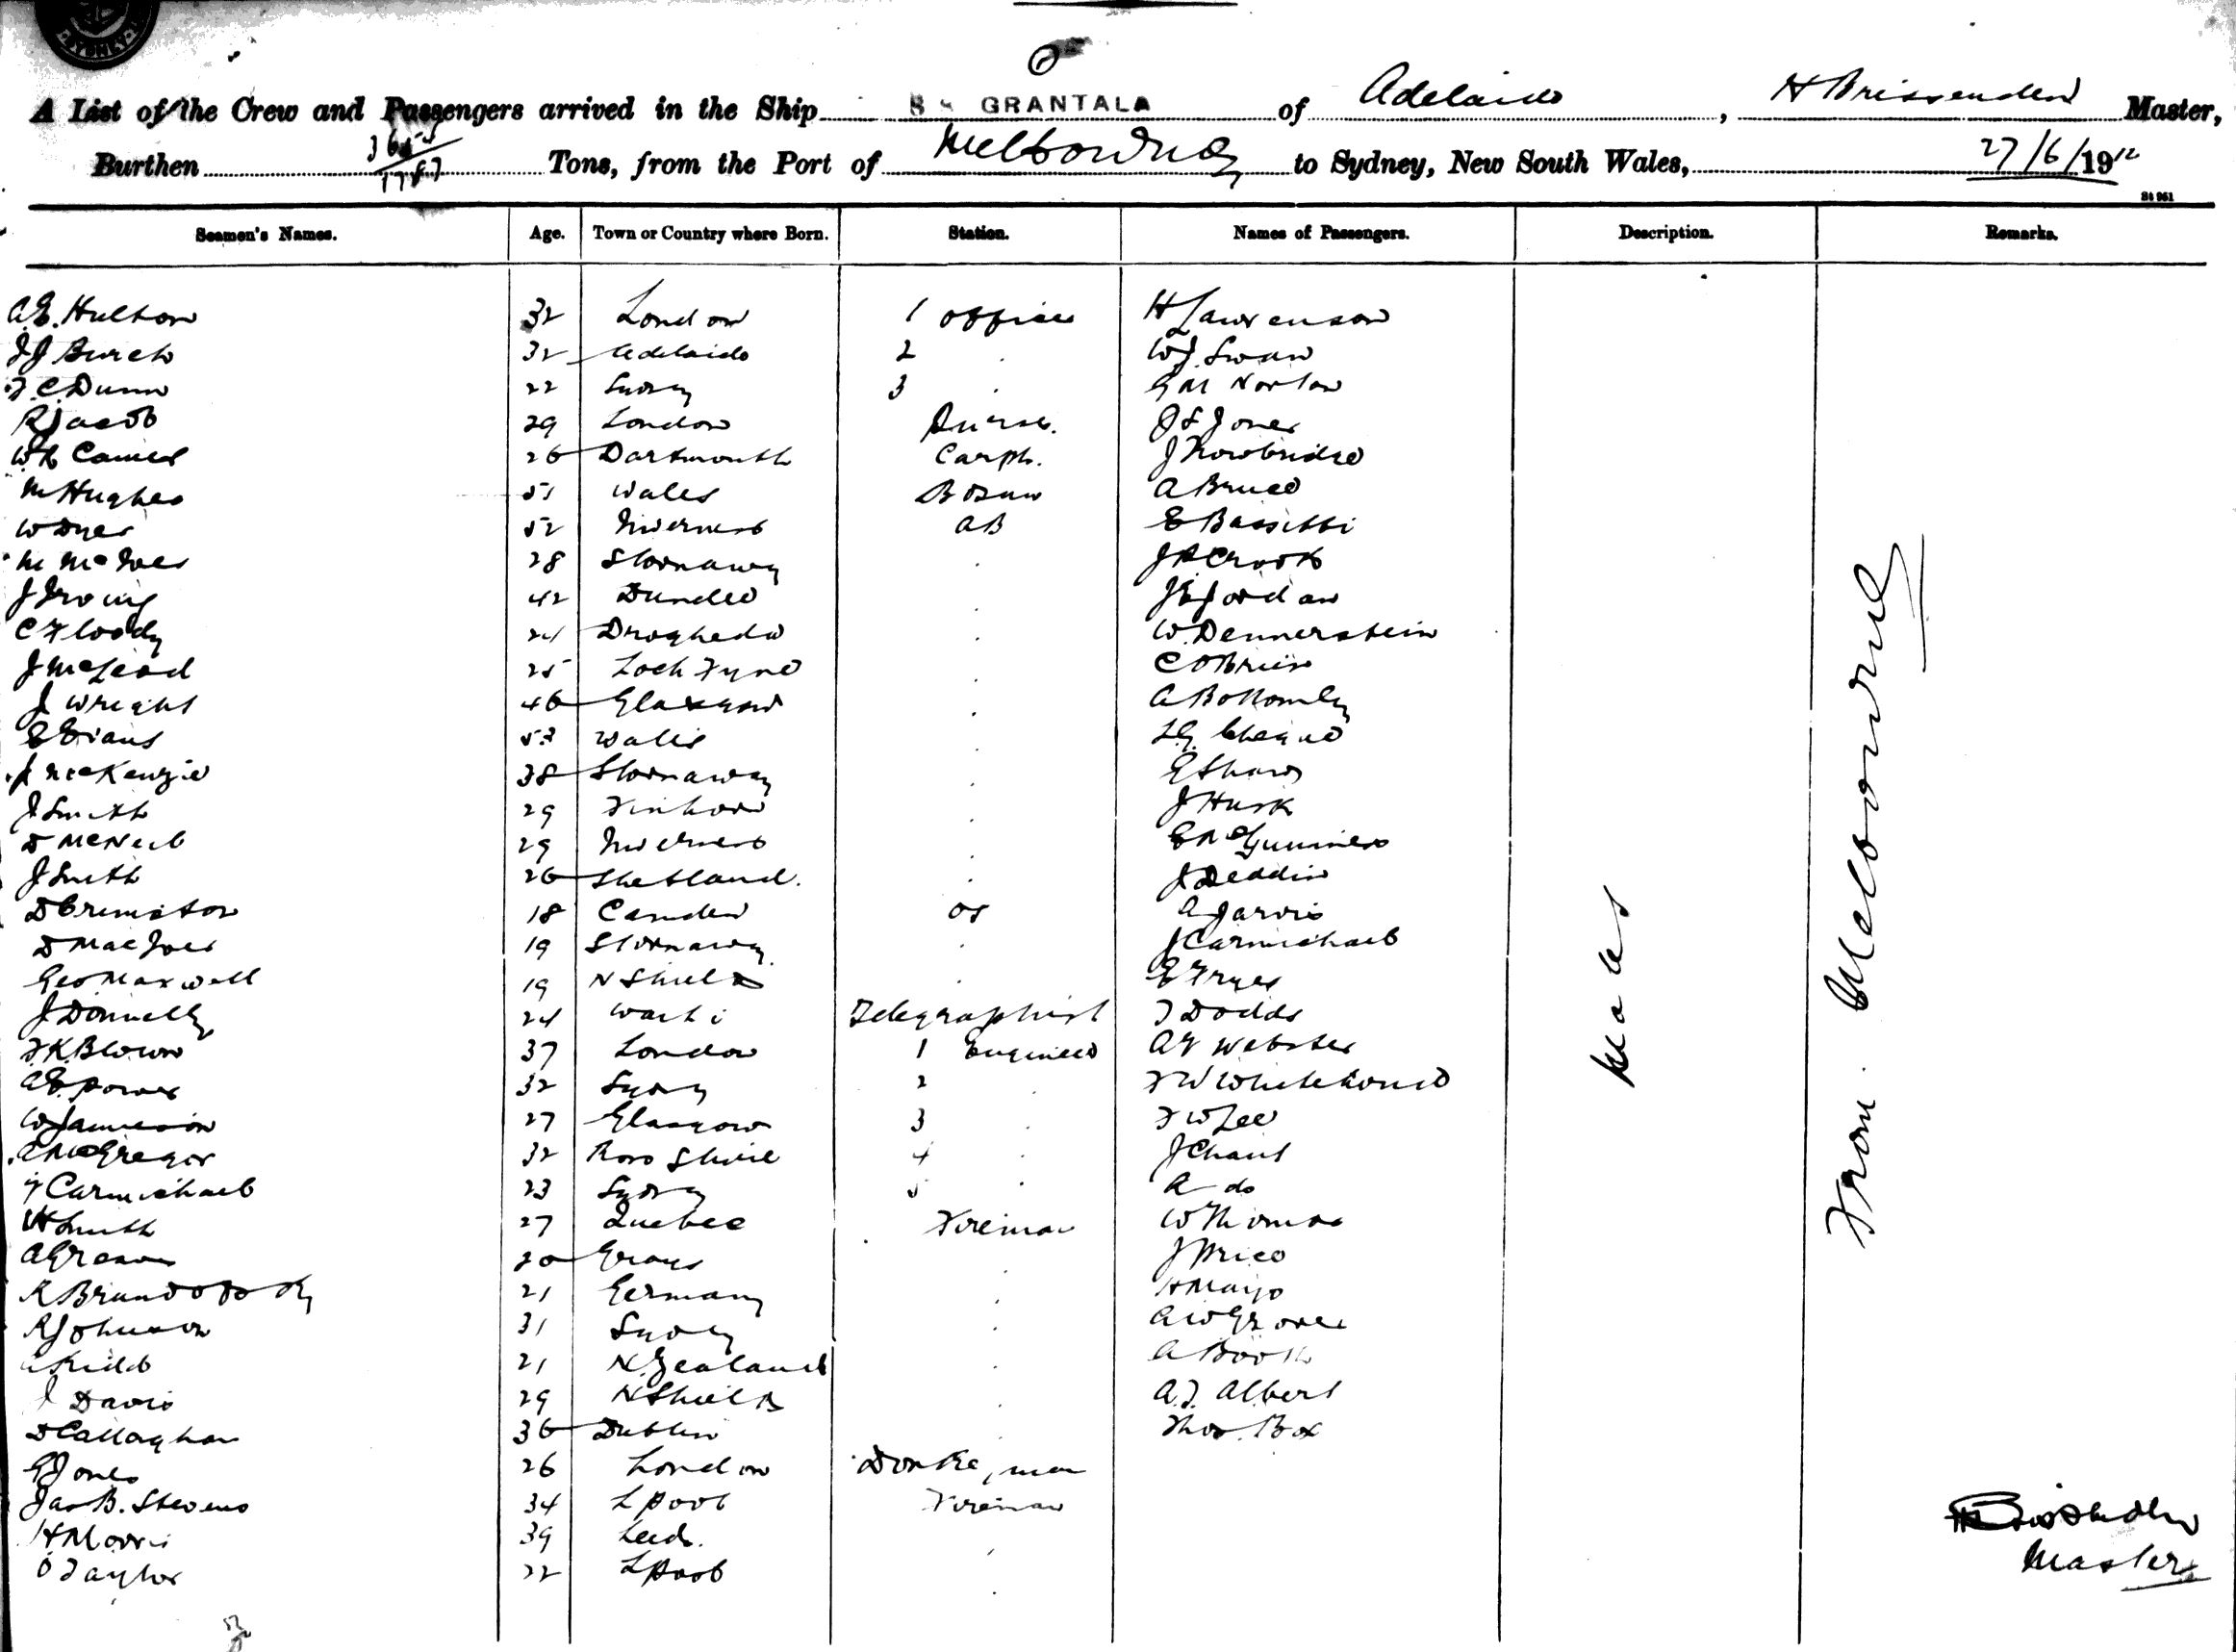 SYDNEY
A List of the Crew and Passengers arrived in the Ship SS GRANTALA of Adelaide, H Brissenden Master,
Burthen 3655/1787 Tons, from the Port of Melbourne to Sydney, New South Wales, 27/6/1912
St 961
Seamen's Names. Age. Town or Country where Born. Station. Names of Passengers. Description. Remarks.
A.E. Hulton 32 London 1 Officer H Lawrenson
J J Burch 32 Adelaide 2 W J. Swan
F.C. Dunn 22 Sydney 3 G M Norton
R Jacob 29 London Purser. J S Jones
W H Camel 26 Dartmouth Carptr. J Trowbridge
M Hughes 51 Wales Bosun A Bruce
W Dyer 52 Inverness AB E Bassetti
M McIver 28 Stornaway J A Crook
J Irving 42 Dundee J E Jordan
C Floody 24 Drogheda W. Dennerstein
J McLeod 25 Loch Fyne C OBrien
J Wright 46 Glasgow A Bottomley
E Evans 53 Wales L G. Cheque
J McKenzie 38 Stornaway G Shaw
J Smith 29 Finhorn J Husk
D McNeil 29 Inverness E McGuinness
J Smith 26 Shetland. J Deddin
D Cremston 18 Camden OS A Jarvis
D MacIver 19 Stornaway J Carmichael
Geo Maxwell 19 N Shields E Fryer
J Donnelly 24 Waihi Telegraphist T Dodds
F K. Blown 37 London 1 Engineer A G Webster
A E. Power 32 Sydney 2 F W Whitehouse
W Jamieson 27 Glasgow 3 F W Lee
A McGregor 32 Ross Shire 4 J Chant
J Carmichael 23 Sydney 5 A do
H Smith 27 Quebec Fireman W Thomas
A Greaves 20 Grays J Price
R 21 Germany H Mayo
R Johnson 31 Sydney A W Grover
A Kidd 21 N. Zealand A Booth
J Davis 29 N Shields A.J. Albert
D Callaghan 36 Dublin Thos. Box
G Jones 26 London Donkeyman
Jas B. Stevens 34 L pool Fireman
H Morris 39 Leeds.
O Taylor 22 L pool
Males
From Melbourne
H Brissenden
Master